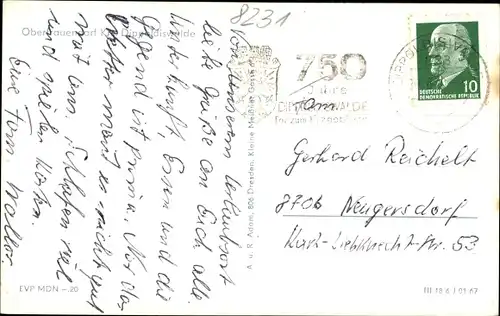 8231
Oberfrauendorf Kr. Dippoldiswalde
Von unserem Urlaubsort
liebe Grüße an Euch alle.
Unterkunft, Essen und die
Gegend ist prima. Nur das
Wetter meint es nicht gut
mit uns. Schlafen viel
und spielen Karten.
Eure Fam. Walter
EVP MDN -.20
A. u. R. Adam, 806 Dresden, Kleine Meißner Gasse
750
Jahre
DIPPOLDISWALDE
DIPPOLDISWALDE
10
DEUTSCHE
DEMOKRATISCHE REPUBLIK
Fam.
Gerhard Reichelt
8706 Neugersdorf
Karl-Liebknecht-Str. 53
III 18 6 J 91 67